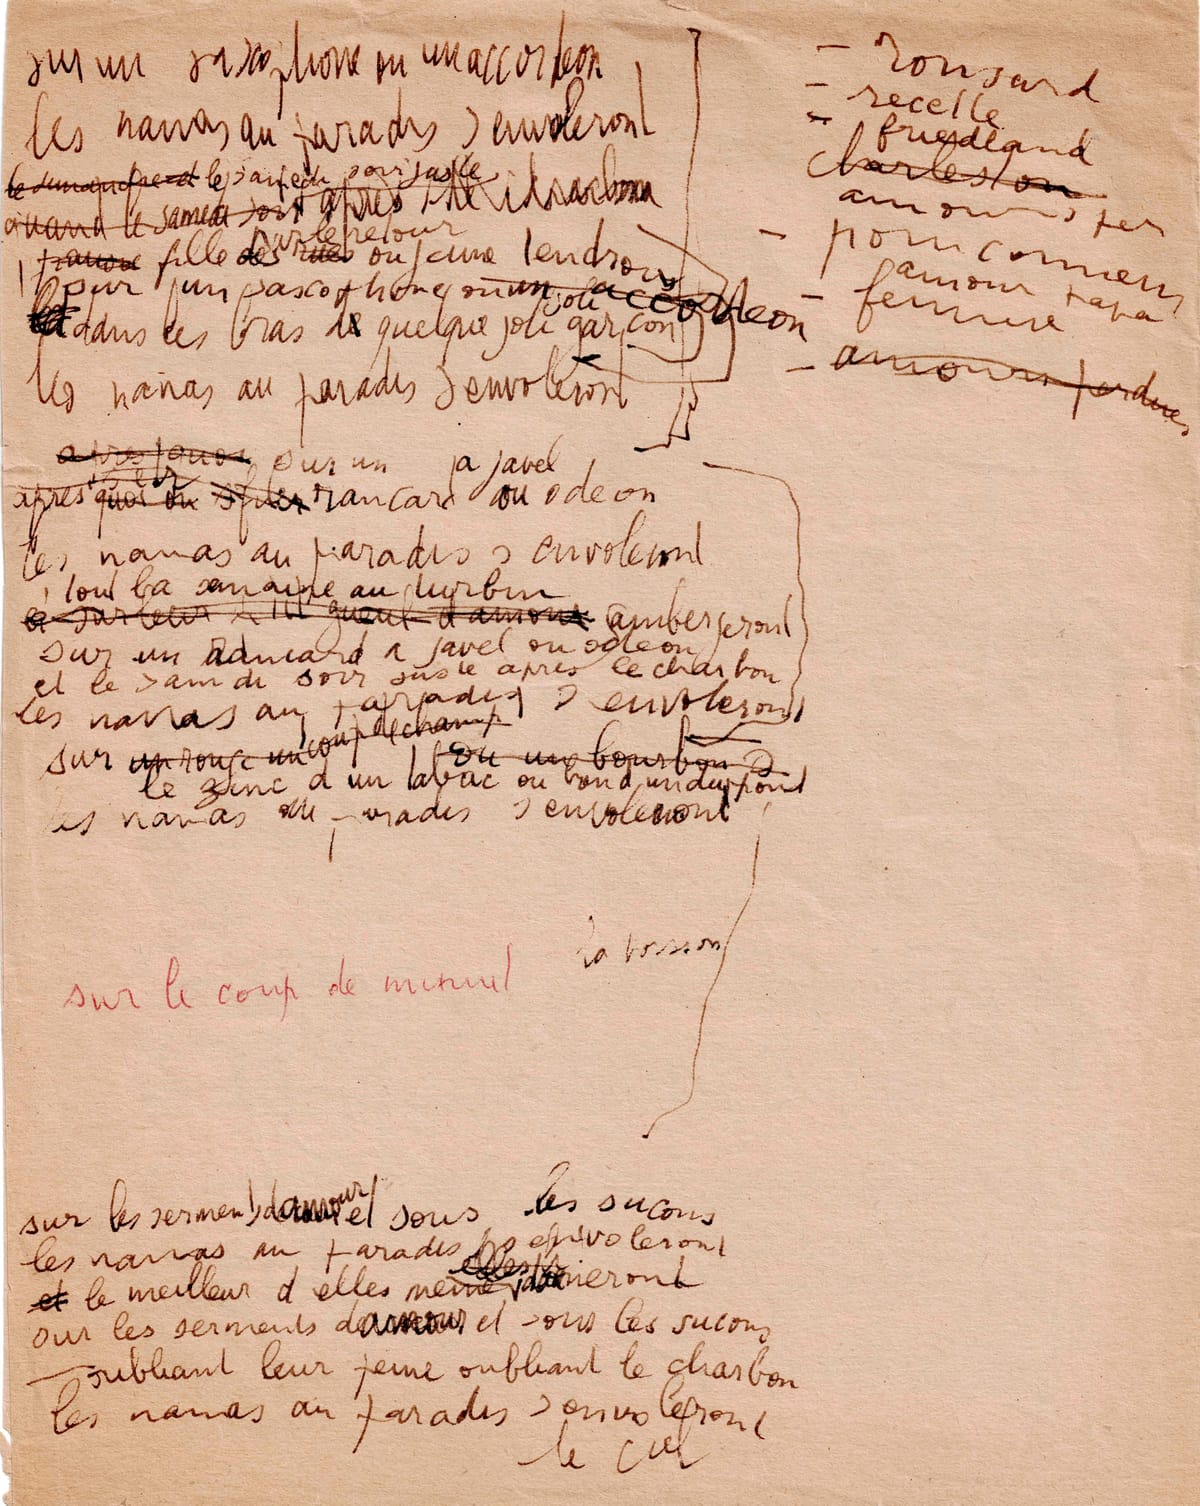 sur un saxophone ou un accordeon
les nanas au paradis s envoleront
le samedi soir juste
quand le samedi soir après le charbon
sur le retour
fille des rues ou jeune tendron
sur un saxophone ou un joli accordeon
dans les bras de quelque joli garçon
les nanas au paradis s envoleront
apres quoi sur un a javel
apres quoi ou rancard ou odeon
les nanas au paradis s envoleront
tout la semaine au turbin
gambergeront
sur un rancard a javel ou odeon
et le samdi soir juste apres le charbon
les nanas au paradis s envoleront
sur un rouge un coup de champ ou un bourbon
le zinc d un tabac ou rond du pont
les nanas au paradis s envoleront
la boisson
sur le coup de minuit
sur les serments d amour et sous les sucons
les nanas au paradis s envoleront
et le meilleur d elles meme donneront
sur les serments d amour et sous les sucons
oubliant leur peine oubliant le charbon
les nanas au paradis s envoleront
le ciel
- ronsard
- recelle
- friedland
charleston
amours
- pour connerie
amour
- femme
- amours perdues